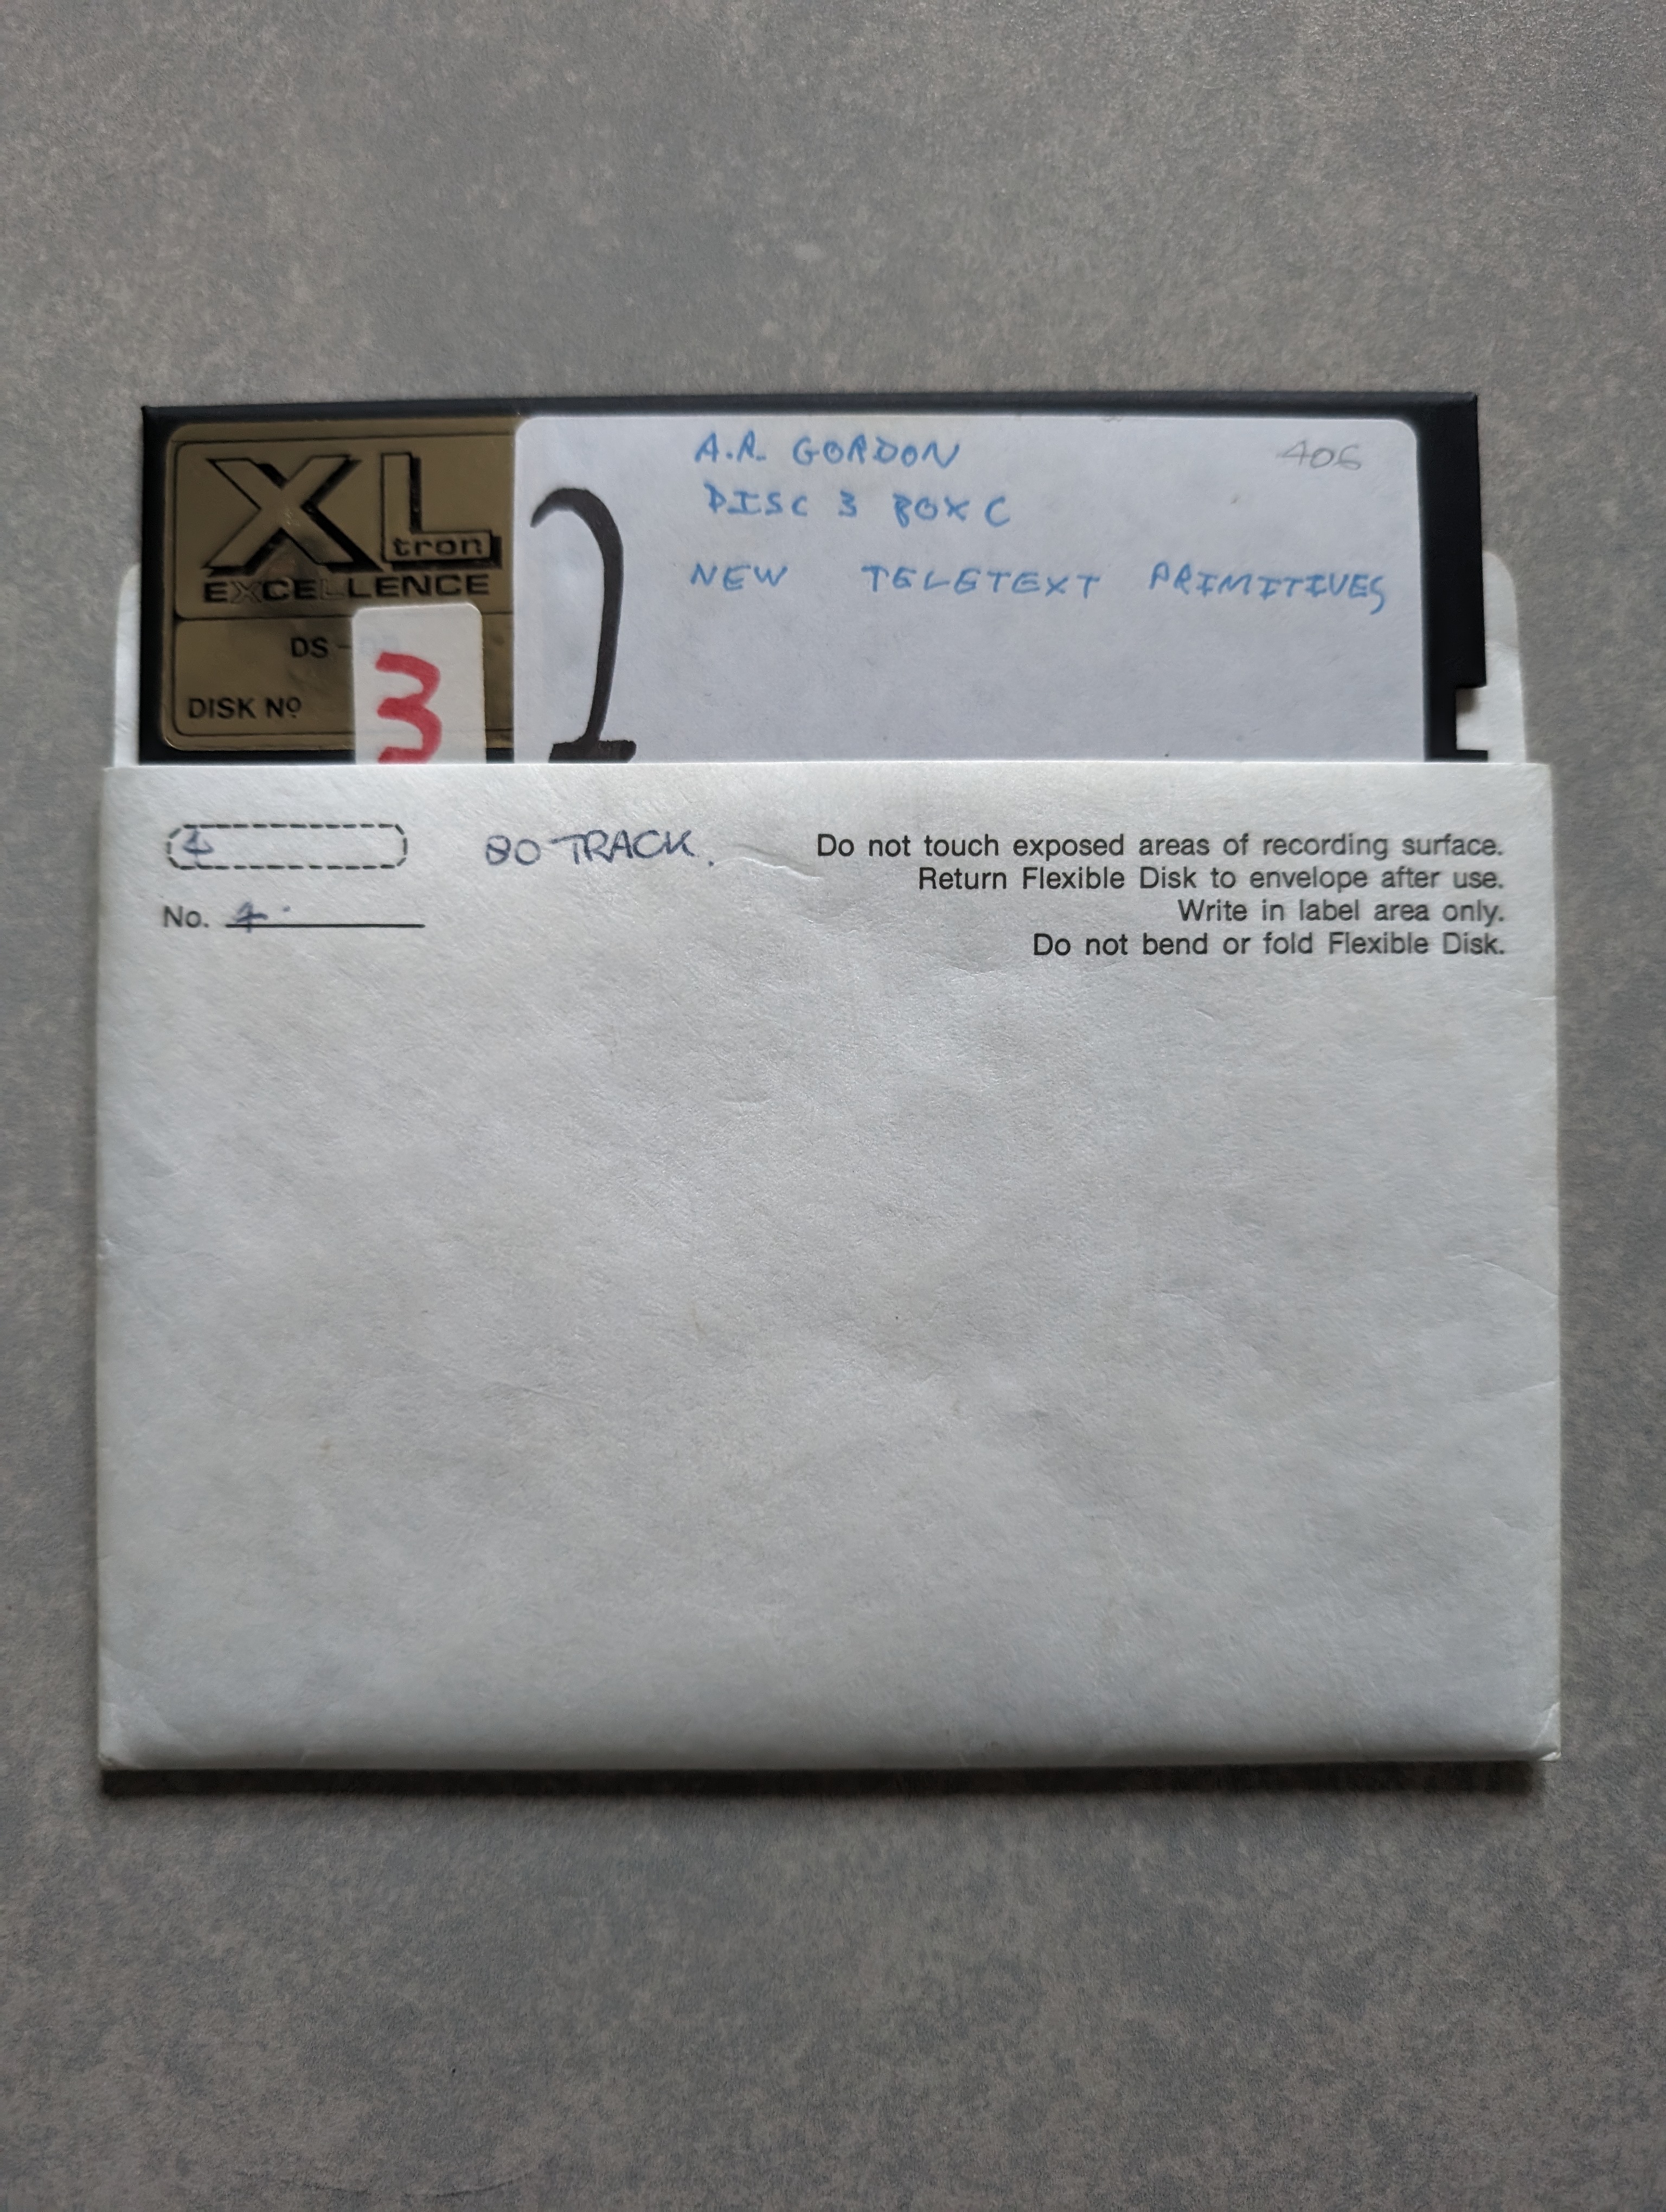 XL
tron
EXCELLENCE
DS -
DISK Nº
3
2
A.R. GORDON
406
DISC 3 BOX C
NEW TELETEXT PRIMITIVES
80 TRACK.
No. 4
Do not touch exposed areas of recording surface.
Return Flexible Disk to envelope after use.
Write in label area only.
Do not bend or fold Flexible Disk.